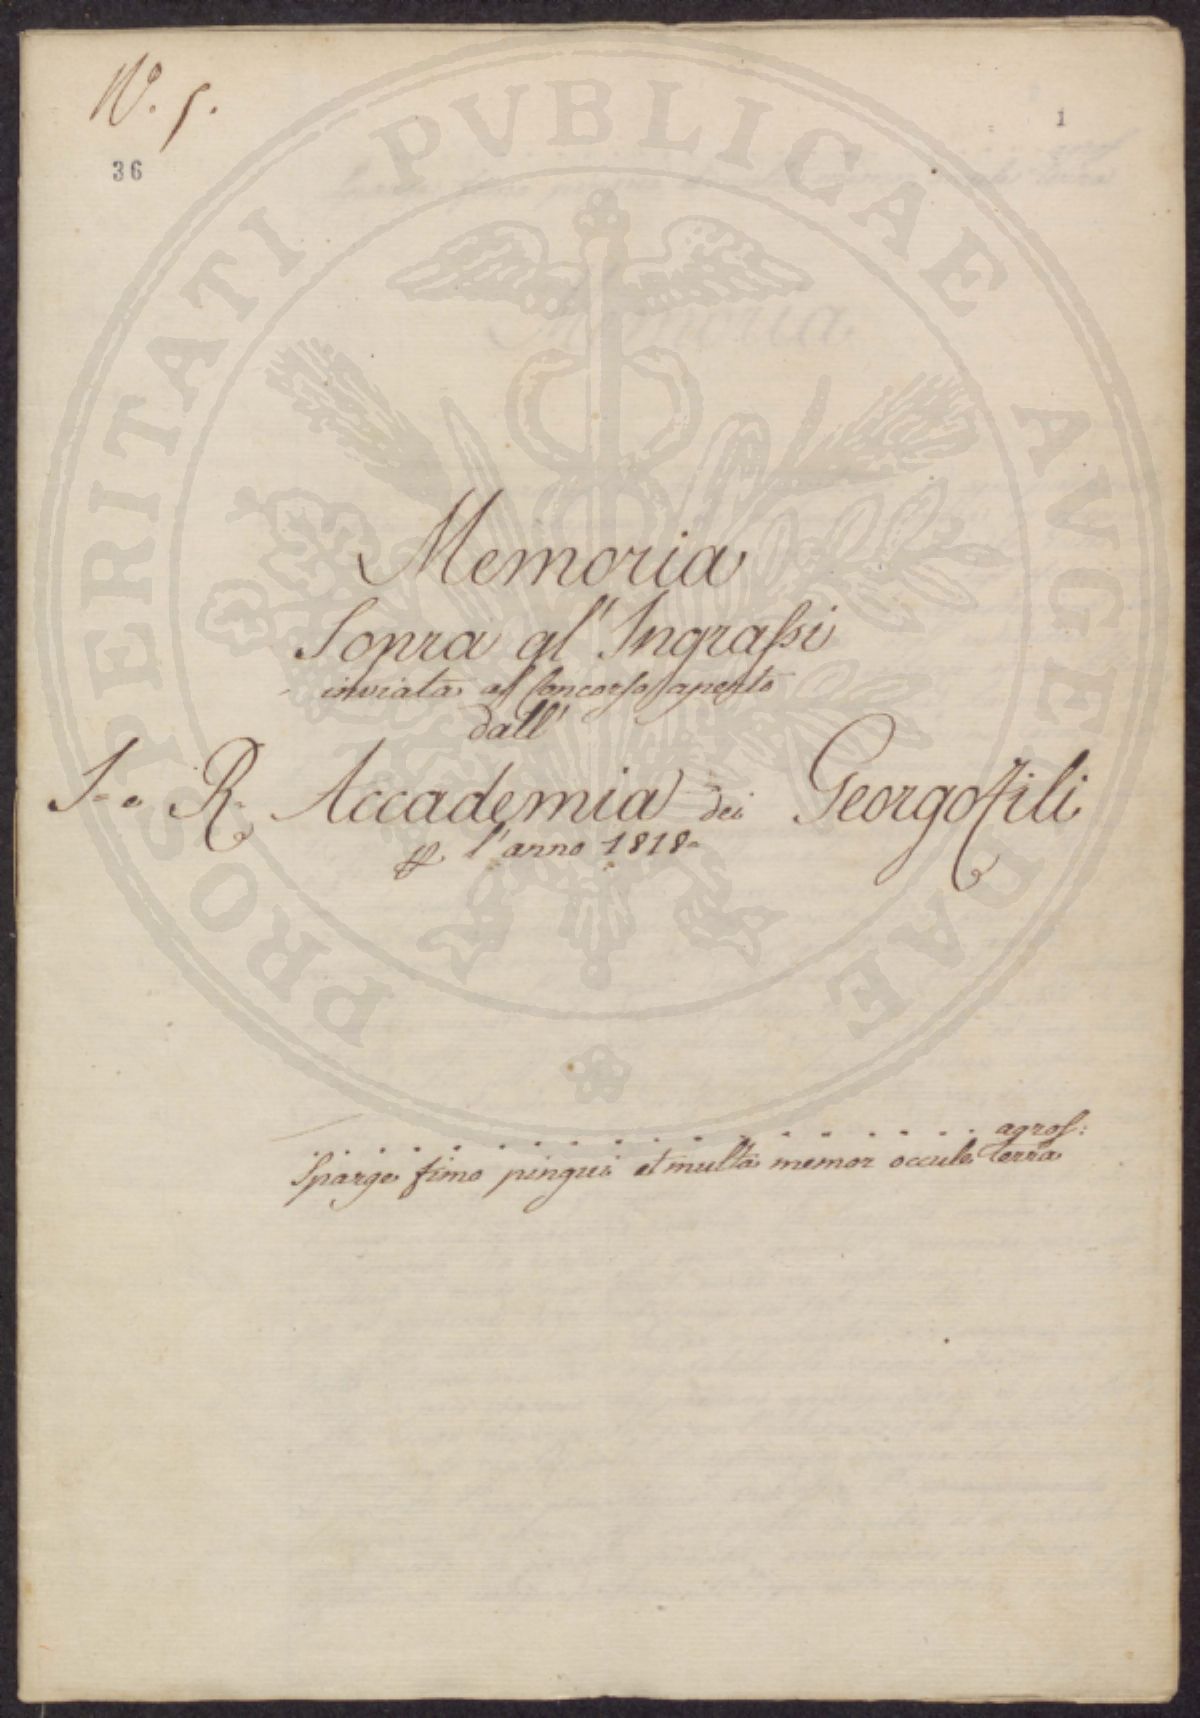 N.° 5.
1
36
PROSPERITATI PVBLICAE AVGENDAE
Memoria
Sopra gl' Ingrassi
inviata al Concorso aperto
dall'
I. e R. Accademia dei Georgofili
l'anno 1818.
. . . . . . . . . . . . . . . . . agros:
Sparge fimo pingui et multa memor occule terra